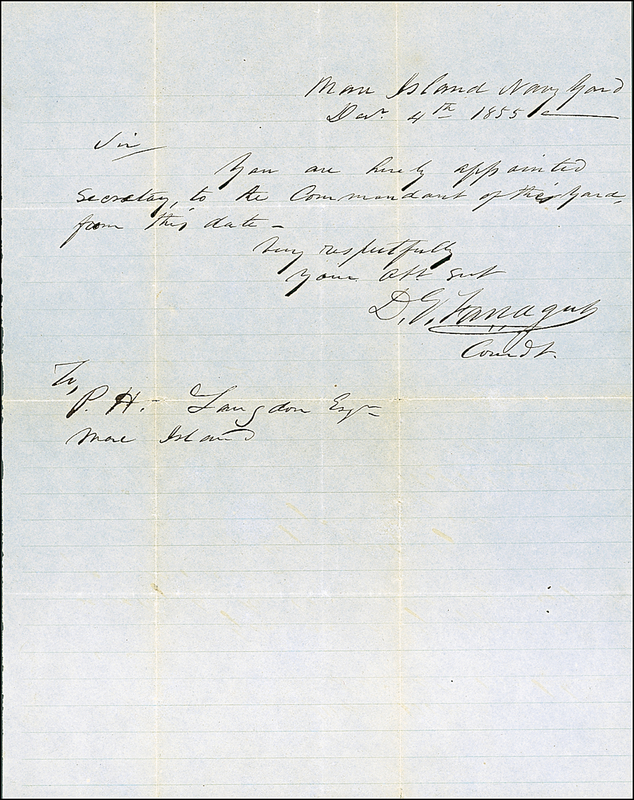 Mare Island Navy Yard
Decr. 4th 1855
Sir
You are hereby appointed
Secretary, to the Commandant of this Yard,
from this date -
Very respectfully
Your Obt Svt
D. G. Farragut
Comdt.
To,
P. H. Langdon Esqr
Mare Island